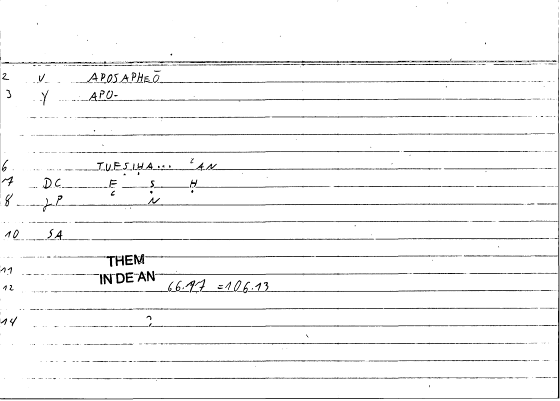 2 V APOSAPHEŌ
3 Y APO-
6 TUESIHA... 'AN
7 DC E S H
8 ZP N
10 SA
THEM
11
IN DE AN
12 66.47 =106.13
14 ?